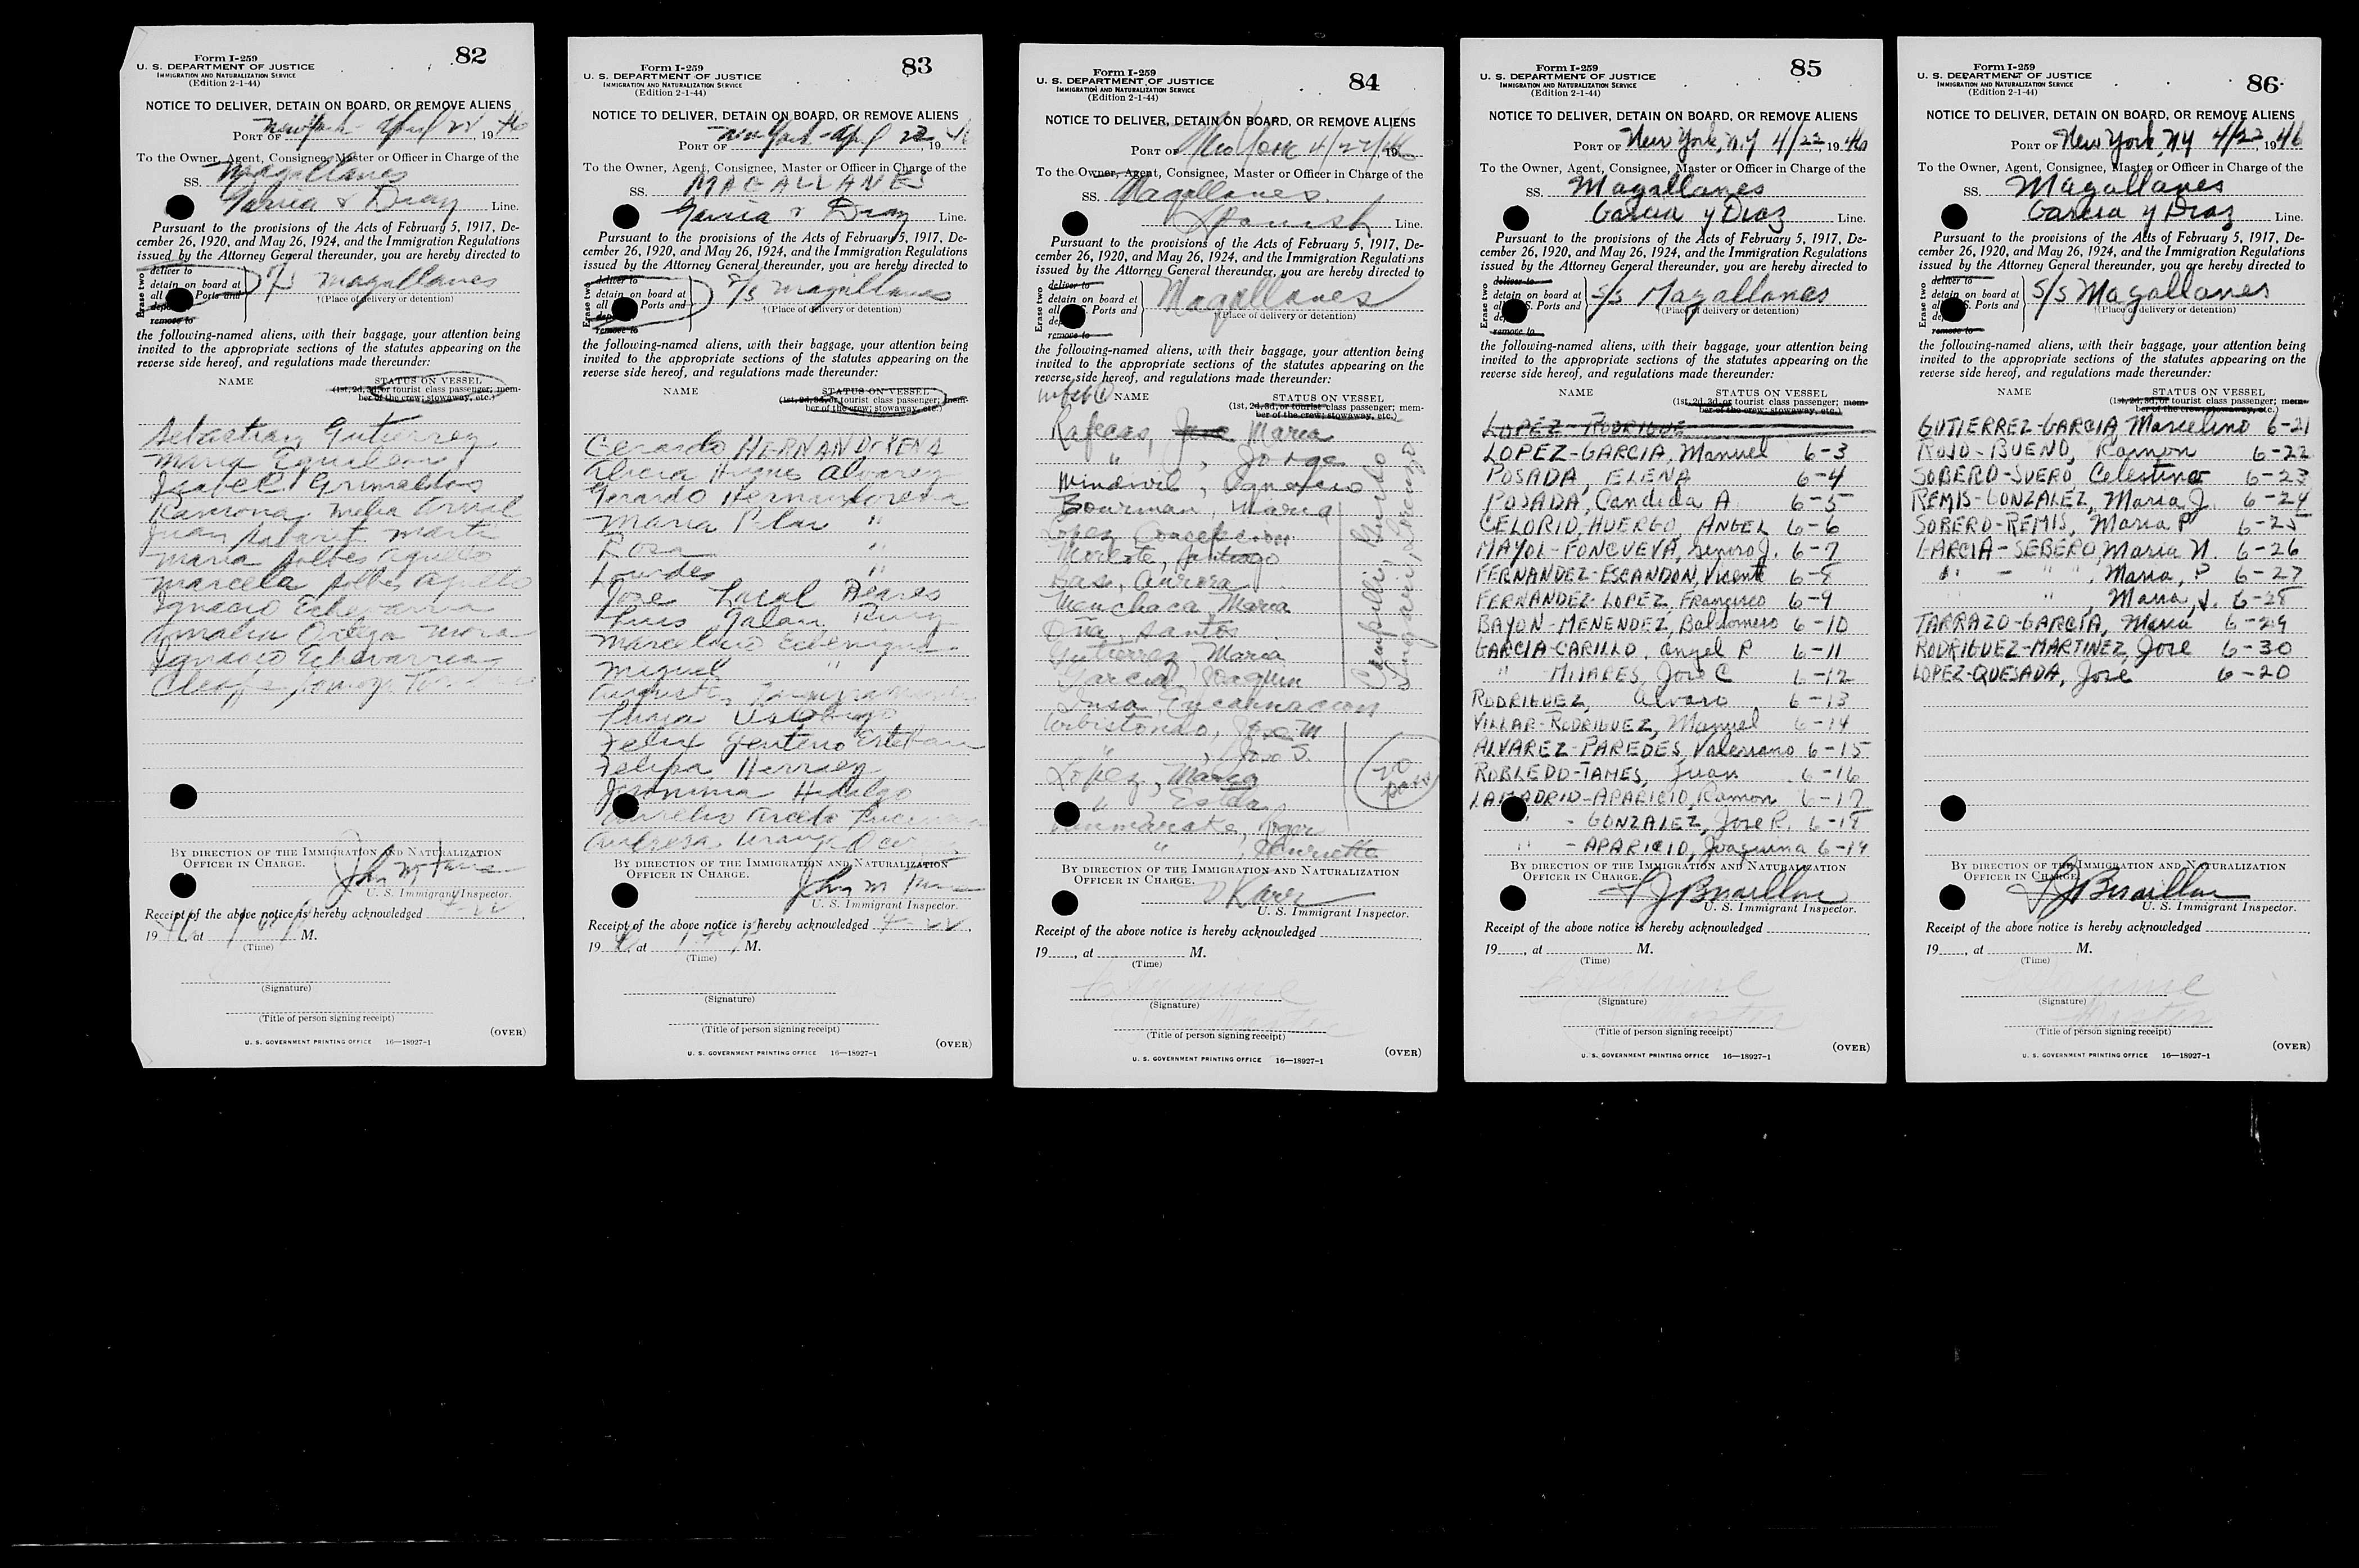 82
Form I-259
U. S. DEPARTMENT OF JUSTICE
IMMIGRATION AND NATURALIZATION SERVICE
(Edition 2-1-44)
NOTICE TO DELIVER, DETAIN ON BOARD, OR REMOVE ALIENS
PORT OF New York April 22, 1946
To the Owner, Agent, Consignee, Master or Officer in Charge of the
SS. Magallanes
Garcia & Diaz Line.
Pursuant to the provisions of the Acts of February 5, 1917, De-
cember 26, 1920, and May 26, 1924, and the Immigration Regulations
issued by the Attorney General thereunder, you are hereby directed to
Erase two
deliver to
detain on board at
all Ports and
remove to
S/S Magallanes
†(Place of delivery or detention)
the following-named aliens, with their baggage, your attention being
invited to the appropriate sections of the statutes appearing on the
reverse side hereof, and regulations made thereunder:
NAME STATUS ON VESSEL
(1st, 2d, 3d, or tourist class passenger; mem-
ber of the crew; stowaway, etc.)
Sebastian Gutierrez
Maria
Isabel Grimaldos
Ramona
Juan Marti
Maria
Marcela
Ignacio Echevarria
Amalia Ortega Mora
Ignacio Echevarria
BY DIRECTION OF THE IMMIGRATION AND NATURALIZATION
OFFICER IN CHARGE.
John M
U. S. Immigrant Inspector.
Receipt of the above notice is hereby acknowledged 4-22
1946 at M.
(Time)
(Signature)
(Title of person signing receipt)
(OVER)
U. S. GOVERNMENT PRINTING OFFICE 16—18927-1
83
Form I-259
U. S. DEPARTMENT OF JUSTICE
IMMIGRATION AND NATURALIZATION SERVICE
(Edition 2-1-44)
NOTICE TO DELIVER, DETAIN ON BOARD, OR REMOVE ALIENS
PORT OF New York April 22 1946
To the Owner, Agent, Consignee, Master or Officer in Charge of the
SS. MAGALLANES
Garcia & Diaz Line.
Pursuant to the provisions of the Acts of February 5, 1917, De-
cember 26, 1920, and May 26, 1924, and the Immigration Regulations
issued by the Attorney General thereunder, you are hereby directed to
Erase two
deliver to
detain on board at
all Ports and
remove to
S/S Magallanes
†(Place of delivery or detention)
the following-named aliens, with their baggage, your attention being
invited to the appropriate sections of the statutes appearing on the
reverse side hereof, and regulations made thereunder:
NAME STATUS ON VESSEL
(1st, 2d, 3d, or tourist class passenger; mem-
ber of the crew; stowaway, etc.)
Gerardo HERNANDORENA
Alicia Alvarez
Gerardo Hernandorena
Maria Pilar "
Rosa "
Lourdes "
Jose
Luis Galan Ruiz
Marcelino
Miguel "
Felix Esteban
Felipa Herraez
Jeronima Hidalgo
Aurelio
Andresa
BY DIRECTION OF THE IMMIGRATION AND NATURALIZATION
OFFICER IN CHARGE.
John M
U. S. Immigrant Inspector.
Receipt of the above notice is hereby acknowledged 4-22
1946 at M.
(Time)
(Signature)
(Title of person signing receipt)
(OVER)
U. S. GOVERNMENT PRINTING OFFICE 16—18927-1
84
Form I-259
U. S. DEPARTMENT OF JUSTICE
IMMIGRATION AND NATURALIZATION SERVICE
(Edition 2-1-44)
NOTICE TO DELIVER, DETAIN ON BOARD, OR REMOVE ALIENS
PORT OF New York 4/22/46
To the Owner, Agent, Consignee, Master or Officer in Charge of the
SS. Magallanes
Spanish Line.
Pursuant to the provisions of the Acts of February 5, 1917, De-
cember 26, 1920, and May 26, 1924, and the Immigration Regulations
issued by the Attorney General thereunder, you are hereby directed to
Erase two
deliver to
detain on board at
all S. Ports and
remove to
Magallanes
†(Place of delivery or detention)
the following-named aliens, with their baggage, your attention being
invited to the appropriate sections of the statutes appearing on the
reverse side hereof, and regulations made thereunder:
NAME STATUS ON VESSEL
(1st, 2d, 3d, or tourist class passenger; mem-
ber of the crew; stowaway, etc.)
Rafecas, Jose Maria
" , Jorge
Mindivil, Ignacio
Bourman, Maria
Lopez Concepcion
Norieste, Santiago
Bas, Aurora
Menchaca Maria
Oña, Santos
Gutierrez, Maria
Garcia, Joaquin
Insa, Encarnacion
Urbistondo, Jose M
" , Jose S
Lopez, Maria
" Estela
, Roger
" , Henriette
Campilli, Guido
Lorenzo
20
BY DIRECTION OF THE IMMIGRATION AND NATURALIZATION
OFFICER IN CHARGE.
D Karr
U. S. Immigrant Inspector.
Receipt of the above notice is hereby acknowledged
19 , at M.
(Time)
(Signature)
Master
(Title of person signing receipt)
(OVER)
U. S. GOVERNMENT PRINTING OFFICE 16—18927-1
85
Form I-259
U. S. DEPARTMENT OF JUSTICE
IMMIGRATION AND NATURALIZATION SERVICE
(Edition 2-1-44)
NOTICE TO DELIVER, DETAIN ON BOARD, OR REMOVE ALIENS
PORT OF New York, N.Y 4/22 1946
To the Owner, Agent, Consignee, Master or Officer in Charge of the
SS. Magallanes
Garcia y Diaz Line.
Pursuant to the provisions of the Acts of February 5, 1917, De-
cember 26, 1920, and May 26, 1924, and the Immigration Regulations
issued by the Attorney General thereunder, you are hereby directed to
Erase two
deliver to
detain on board at
all S. Ports and
remove to
S/S Magallanes
†(Place of delivery or detention)
the following-named aliens, with their baggage, your attention being
invited to the appropriate sections of the statutes appearing on the
reverse side hereof, and regulations made thereunder:
NAME STATUS ON VESSEL
(1st, 2d, 3d, or tourist class passenger; mem-
ber of the crew; stowaway, etc.)
LOPEZ-RODRIGUE
LOPEZ-GARCIA, Manuel 6-3
POSADA, ELENA 6-4
POSADA, Candida A 6-5
CELORIO-HUERGO, ANGEL 6-6
MAYOL-FONCUEVA, Genero J. 6-7
FERNANDEZ-ESCANDON, Vicente 6-8
FERNANDEZ-LOPEZ, Francisco 6-9
BAYON-MENENDEZ, Baldomero 6-10
GARCIA-CARILLO, Angel P 6-11
" -MIJARES, Jose C 6-12
RODRIGUEZ, Alvaro 6-13
VILLAR-RODRIGUEZ, Manuel 6-14
ALVAREZ-PAREDES, Valeriano 6-15
ROBLEDO-TAMES, Juan 6-16
LAMADRID-APARICIO, Ramon 6-17
" - GONZALEZ, Jose R. 6-18
" - APARICIO, Joaquina 6-19
BY DIRECTION OF THE IMMIGRATION AND NATURALIZATION
OFFICER IN CHARGE.
U. S. Immigrant Inspector.
Receipt of the above notice is hereby acknowledged
19 , at M.
(Time)
(Signature)
Master
(Title of person signing receipt)
(OVER)
U. S. GOVERNMENT PRINTING OFFICE 16—18927-1
86
Form I-259
U. S. DEPARTMENT OF JUSTICE
IMMIGRATION AND NATURALIZATION SERVICE
(Edition 2-1-44)
NOTICE TO DELIVER, DETAIN ON BOARD, OR REMOVE ALIENS
PORT OF New York, NY 4/22 1946
To the Owner, Agent, Consignee, Master or Officer in Charge of the
SS. Magallanes
Garcia y Diaz Line.
Pursuant to the provisions of the Acts of February 5, 1917, De-
cember 26, 1920, and May 26, 1924, and the Immigration Regulations
issued by the Attorney General thereunder, you are hereby directed to
Erase two
deliver to
detain on board at
all S. Ports and
remove to
S/S Magallanes
†(Place of delivery or detention)
the following-named aliens, with their baggage, your attention being
invited to the appropriate sections of the statutes appearing on the
reverse side hereof, and regulations made thereunder:
NAME STATUS ON VESSEL
(1st, 2d, 3d, or tourist class passenger; mem-
ber of the crew; stowaway, etc.)
GUTIERREZ-GARCIA, Marcelino 6-21
ROJO-BUENO, Ramon 6-22
SOBERO-SUERO, Celestino 6-23
REMIS-GONZALEZ, Maria J. 6-24
SOBERO-REMIS, Maria P 6-25
GARCIA-SEBERO, Maria N. 6-26
" - " , Maria, P 6-27
" , Maria, J. 6-28
TARRAZO-GARCIA, Maria 6-29
RODRIGUEZ-MARTINEZ, Jose 6-30
LOPEZ-QUESADA, Jose 6-20
BY DIRECTION OF THE IMMIGRATION AND NATURALIZATION
OFFICER IN CHARGE.
U. S. Immigrant Inspector.
Receipt of the above notice is hereby acknowledged
19 , at M.
(Time)
(Signature)
Master
(Title of person signing receipt)
(OVER)
U. S. GOVERNMENT PRINTING OFFICE 16—18927-1